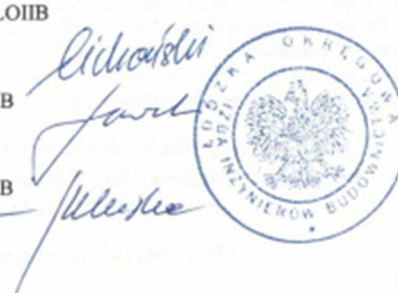 LOIIB
Cichoński
IB
IB
ŁÓDZKA OKRĘGOWA
IZBA INŻYNIERÓW BUDOWNICTWA